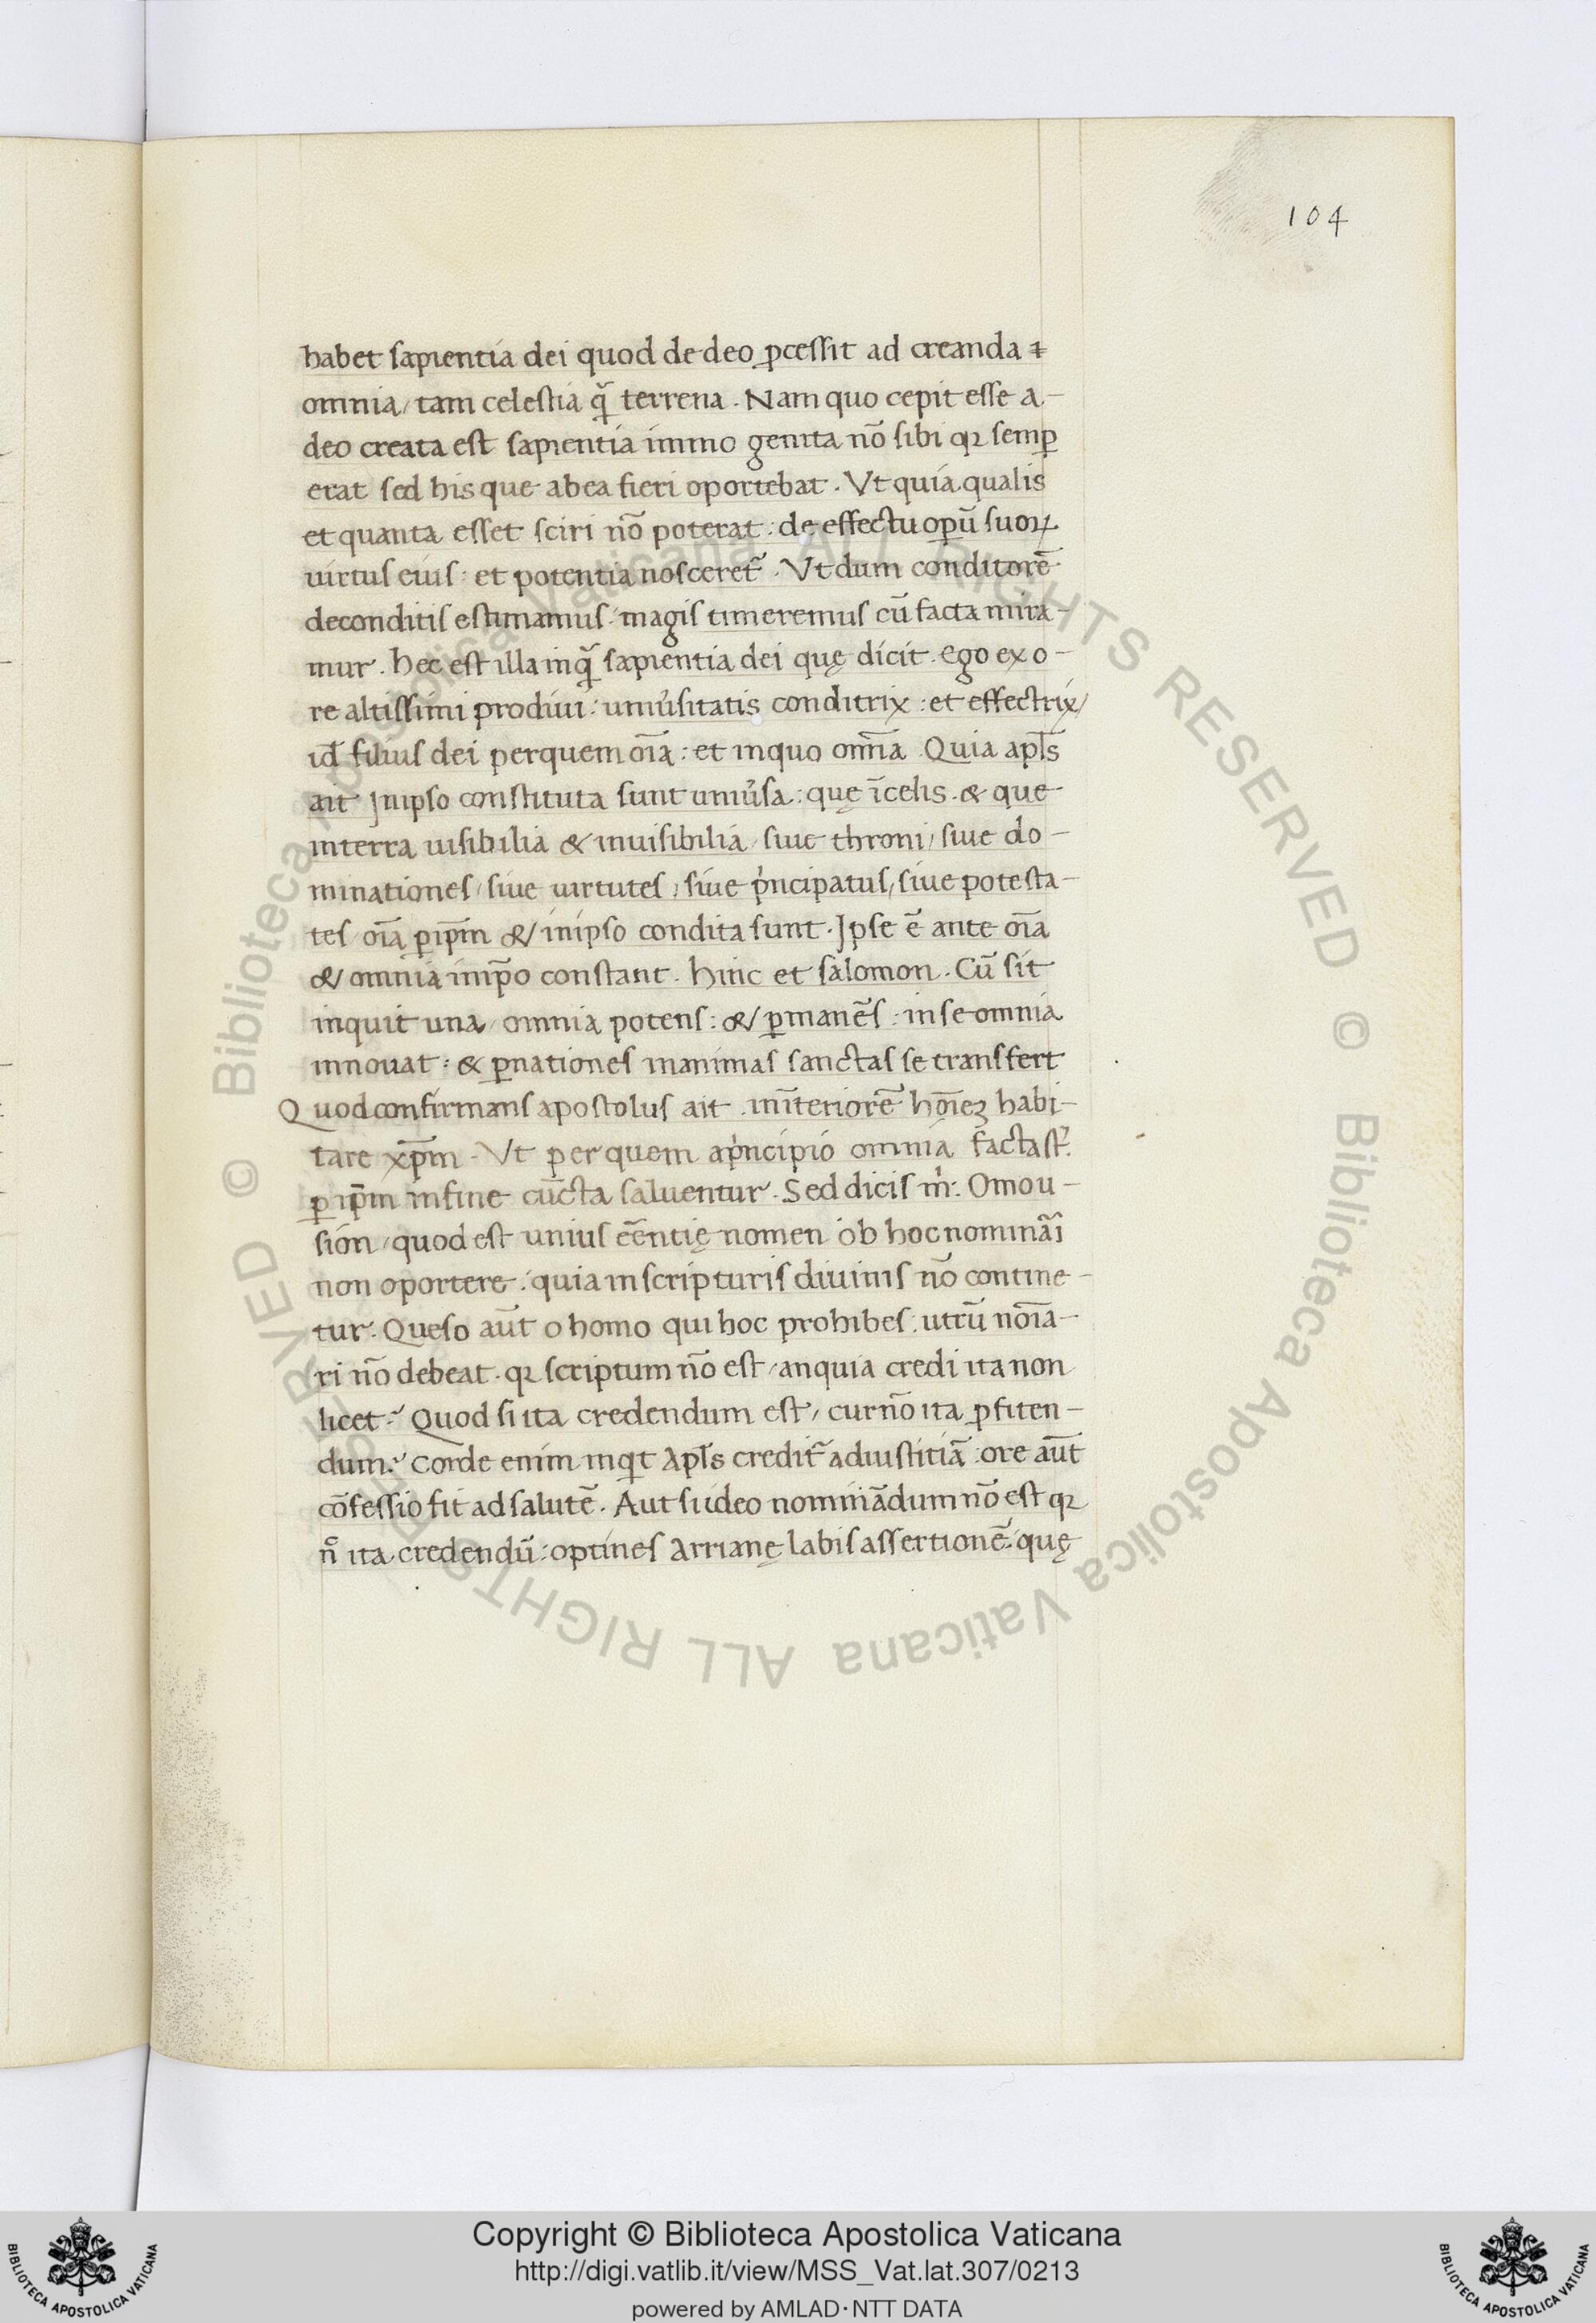 104
habet sapientia dei quod de deo ꝓcessit ad creanda
omnia / tam celestia q̃ terrena . Nam quo cepit esse a –
deo creata est sapientia immo genita nõ sibi qꝛ semꝑ
erat sed his que ab ea fieri oportebat . Vt quia qualis
et quanta esset sciri nõ poterat : de effectu oꝑũ suoꝝ
uirtus eius : et potentia nosceret᷑ . Vt dum conditorẽ
de conditis estimamus / magis timeremus cũ facta mira –
mur . hec est illa inq̃ sapientia dei quę dicit . ego ex o –
re altissimi prodiui : uniu̓sitatis conditrix : et effectrix /
id̄ filius dei per quem oĩa : et in quo om̃ia Quia apl̃s
ait Jn ipso constituta sunt uniu̓sa : quę ĩ celis . & que
in terra uisibilia & inuisibilia / siue throni / siue do –
minationes / siue uirtutes / siue pͥncipatus / siue potesta –
tes oĩa ꝑ ip̃m & in ipso condita sunt . Jpse ẽ ante oĩa
& omnia in ip̃o constant . hinc et salomon . Cũ sit
inquit una / omnia potens : & ꝑmanẽs : in se omnia
innouat : & ꝑ nationes in animas sanctas se transfert
Quod confirmans apostolus ait . in ĩteriorẽ hõieꝫ habi –
tare xp̃m . Vt per quem a pͥncipio omnia facta st᷑.
ꝑ ip̃m in fine cũcta saluentur . Sed dicis mͥ : Omou –
sion / quod est unius eẽntię nomen ob hoc nominãi
non oportere : quia in scripturis diuinis nõ contine –
tur . Queso aũt o homo qui hoc prohibes : utrũ noĩa –
ri nõ debeat . qꝛ scriptum nõ est / an quia credi ita non
licet ? Quod si ita credendum est / cur nõ ita ꝓfiten –
dum ? Corde enim inqͥt Apl̃s credit᷑ ad iustitiã : ore aũt
cõfessio fit ad salutẽ . Aut si ideo nominãdum nõ est qꝛ
n̊ ita credendũ : optines Arrianę labis assertionẽ : quę
Copyright © Biblioteca Apostolica Vaticana
http://digi.vatlib.it/view/MSS_Vat.lat.307/0213
powered by AMLAD·NTT DATA
BIBLIOTECA APOSTOLICA VATICANA
BIBLIOTECA APOSTOLICA VATICANA
© Biblioteca Apostolica Vaticana ALL RIGHTS RESERVED © Biblioteca Apostolica Vaticana ALL RIGHTS RESERVED